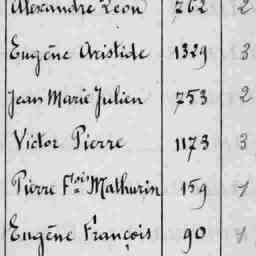 Alexandre Léon 762 2
Eugène Aristide 1329 3
Jean Marie Julien 753 2
Victor Pierre 1173 3
Pierre Fois Mathurin 159 1
Eugène François 90 1